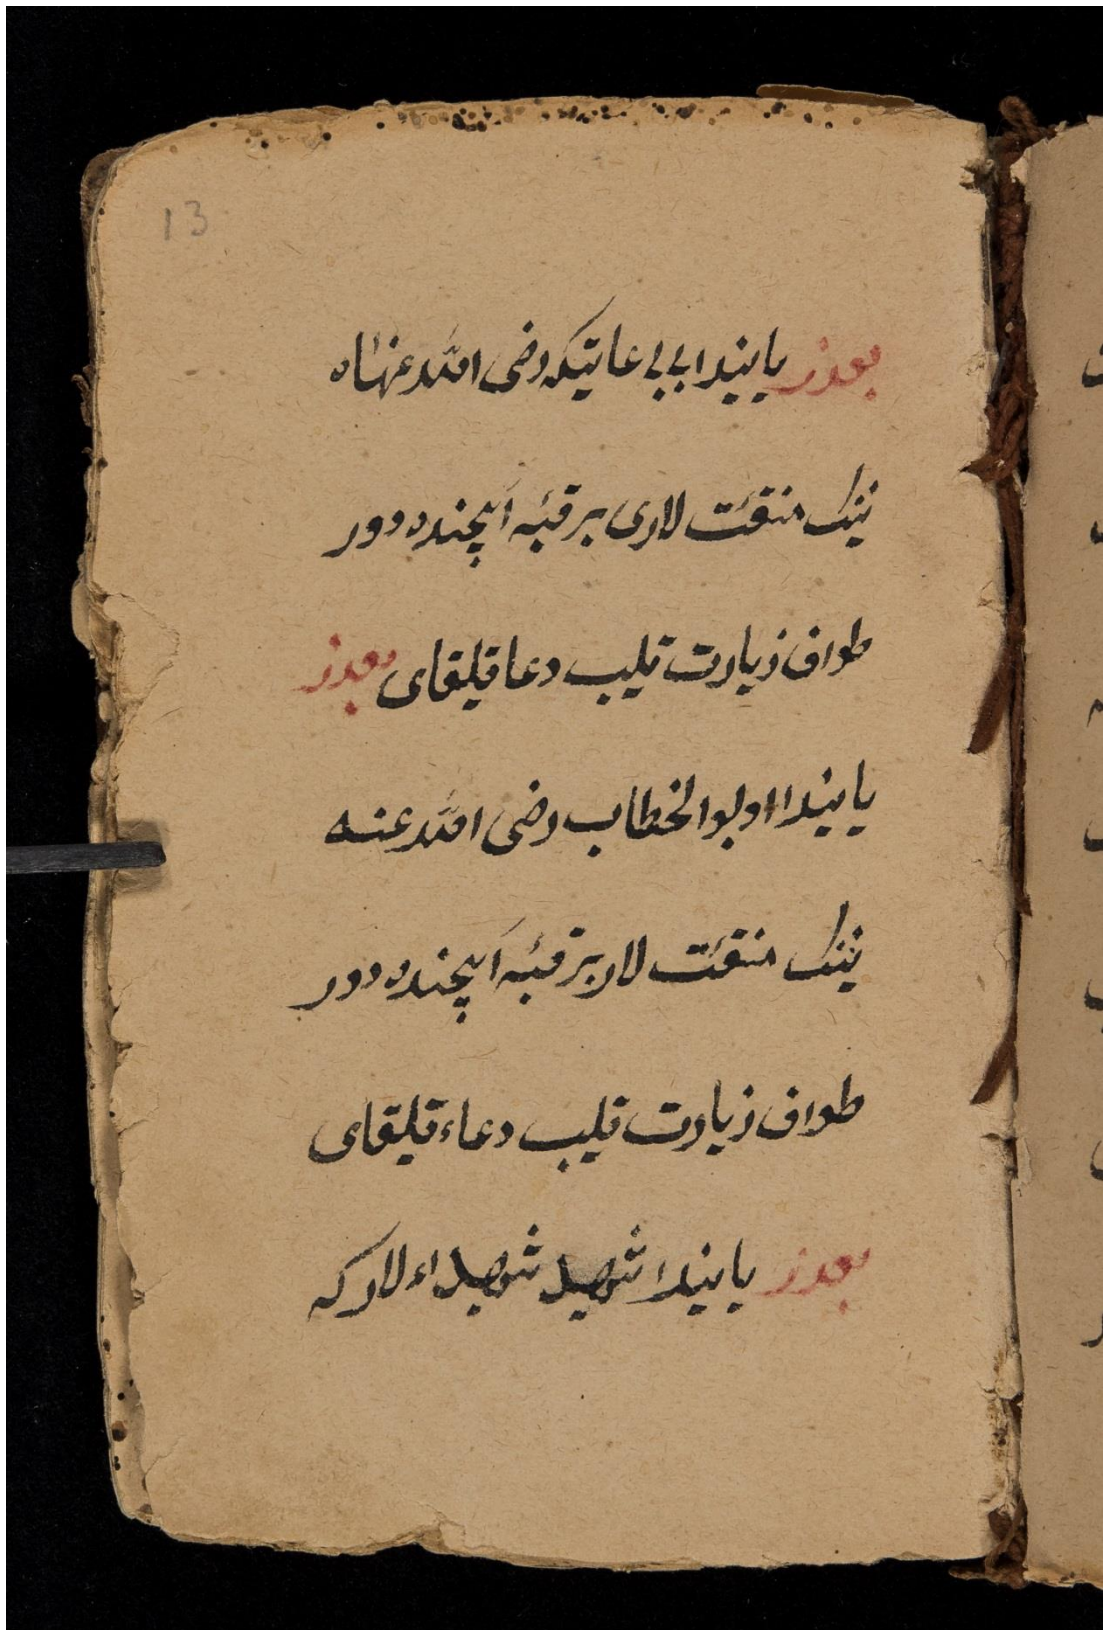 13
بعدز یانیدا بی بی عاتیکه رضی الله عنهاه
نینک منقئت لاری بر قبّه اَیچنده دور
طواف زیارت قیلیب دعا قیلقای بعدز
یانیدا اولبوالخطاب رضی الله عنه
نینک منقئت لار بر قبّه اَیچنده دور
طواف زیارت قیلیب دعاء قیلقای
بعدز یانیدا شهید شهیداء لار که